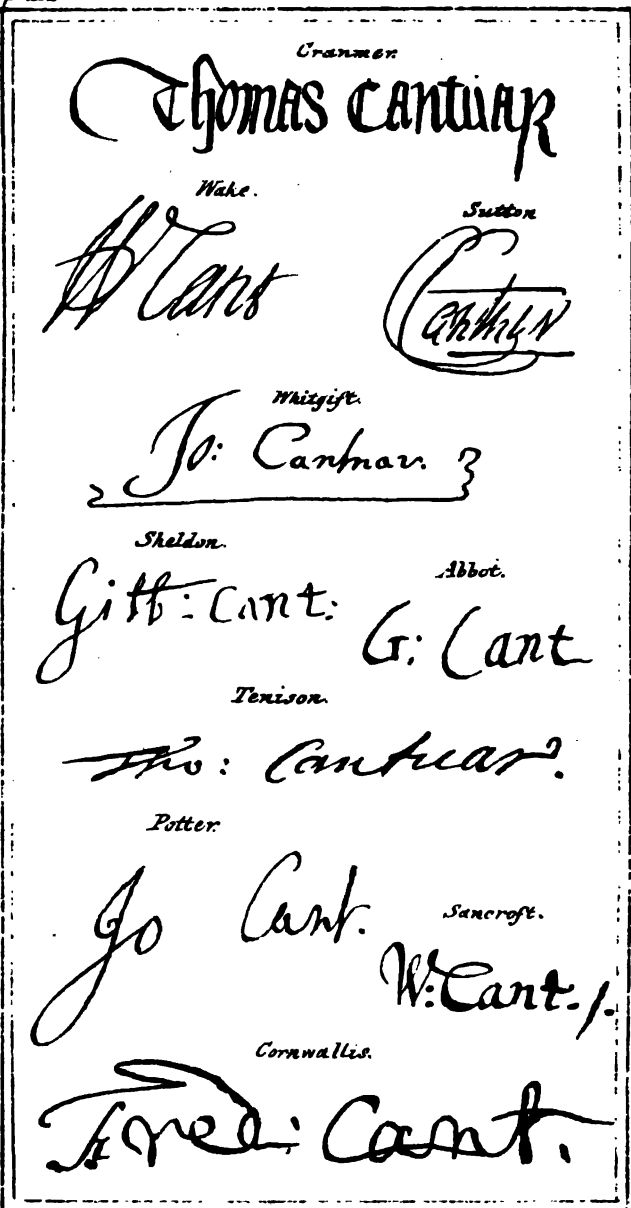 Cranmer.
Thomas Cantuar
Wake.
W Cant
Sutton
C Cantuar
Whitgift.
Jo: Cantuar.
Sheldon.
Gilb: Cant:
Abbot.
G: Cant
Tenison.
Tho: Cantuar.
Potter.
Jo Cant.
Sancroft.
W: Cant.
Cornwallis.
Fred: Cant.